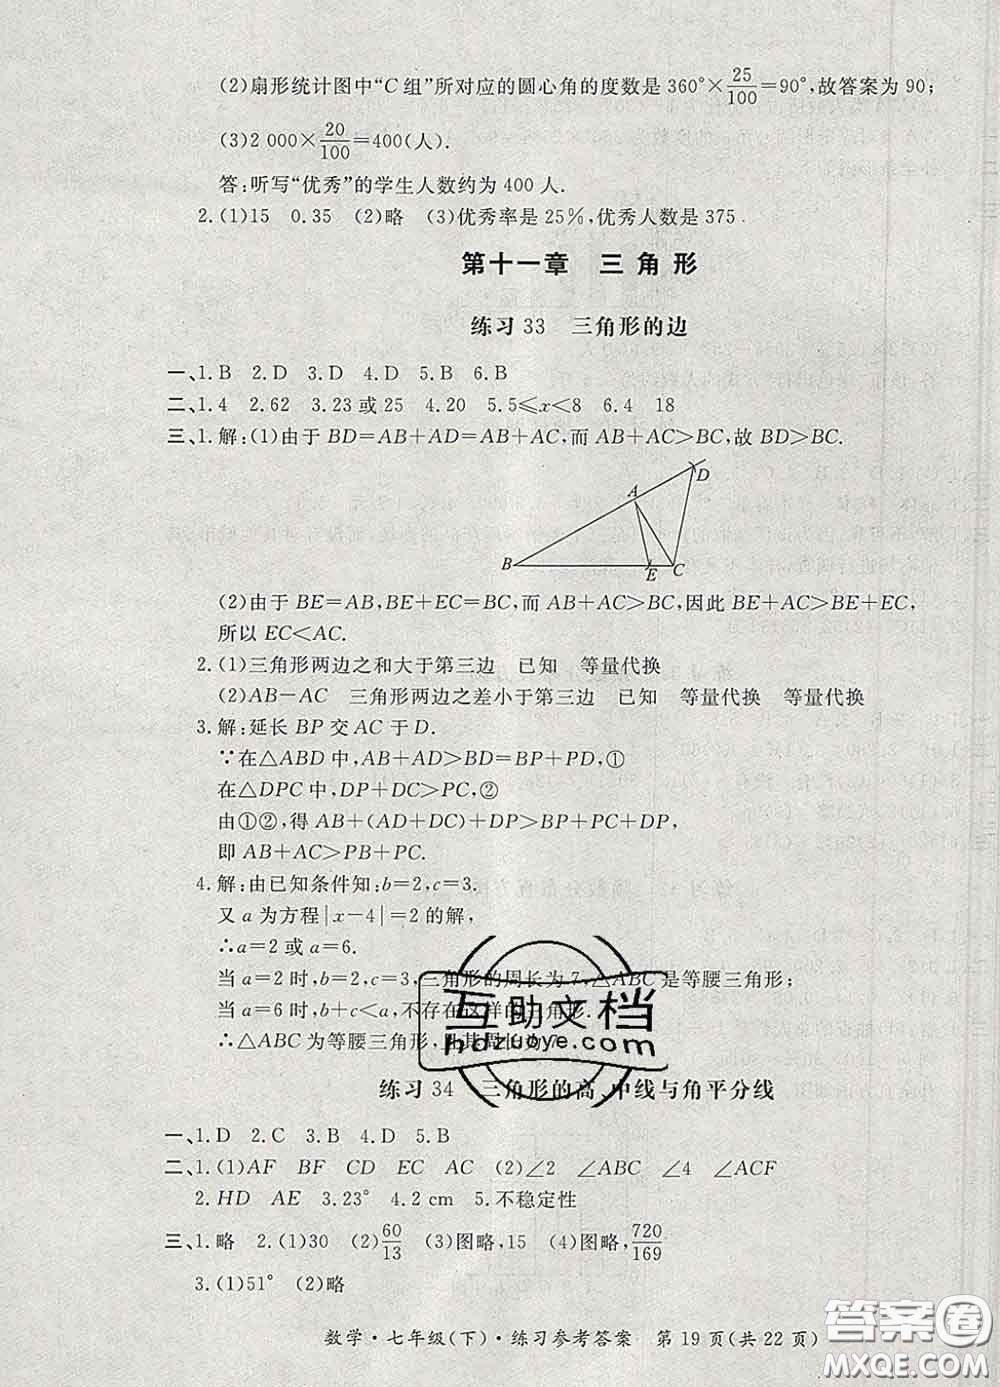 (2)扇形统计图中“C组”所对应的圆心角的度数是360°×25/100=90°,故答案为90;
(3)2 000×20/100=400(人).
答:听写“优秀”的学生人数约为400人.
2.(1)15 0.35 (2)略 (3)优秀率是25%,优秀人数是375
第十一章 三角形
练习33 三角形的边
一、1.B 2.D 3.D 4.D 5.B 6.B
二、1.4 2.62 3.23或25 4.20 5.5≤x<8 6.4 18
三、1.解:(1)由于BD=AB+AD=AB+AC,而AB+AC>BC,故BD>BC.
D
A
B
E
C
(2)由于BE=AB,BE+EC=BC,而AB+AC>BC,因此BE+AC>BE+EC,
所以EC<AC.
2.(1)三角形两边之和大于第三边 已知 等量代换
(2)AB-AC 三角形两边之差小于第三边 已知 等量代换 等量代换
3.解:延长BP交AC于D.
∵在△ABD中,AB+AD>BD=BP+PD,①
在△DPC中,DP+DC>PC,②
由①②,得AB+(AD+DC)+DP>BP+PC+DP,
即AB+AC>PB+PC.
4.解:由已知条件知:b=2,c=3.
又a为方程|x-4|=2的解,
∴a=2或a=6.
当a=2时,b=2,c=3,三角形的周长为7,△ABC是等腰三角形;
当a=6时,b+c<a,不存在这样的三角形.
∴△ABC为等腰三角形,且其周长为7.
互助文档
hdzuoye.com
练习34 三角形的高、中线与角平分线
一、1.D 2.C 3.B 4.D 5.B
二、1.(1)AF BF CD EC AC (2)∠2 ∠ABC ∠4 ∠ACF
2.HD AE 3.23° 4.2 cm 5.不稳定性
三、1.略 2.(1)30 (2)60/13 (3)图略,15 (4)图略,720/169
3.(1)51° (2)略
数学·七年级(下)·练习参考答案 第19页(共22页)
答案圈
MXQE.COM